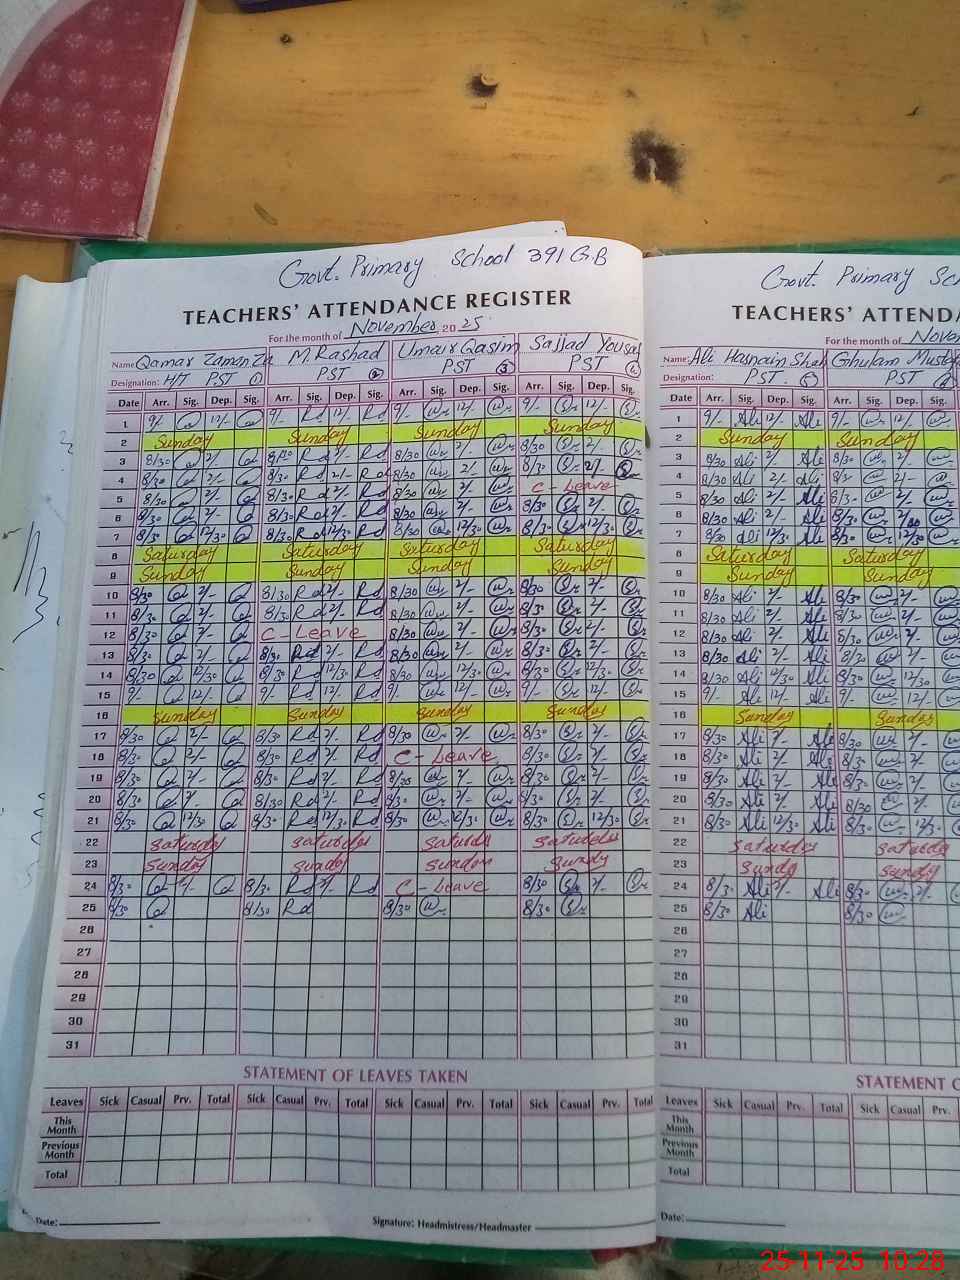 Govt. Primary School 391 G.B
TEACHERS' ATTENDANCE REGISTER
For the month of November 2025
Name Qamar Zaman Za M. Rashad Umair Qasim Sajjad Yousaf
Designation: H/T PST 1 PST 2 PST 3 PST 4
Date Arr. Sig. Dep. Sig. Arr. Sig. Dep. Sig. Arr. Sig. Dep. Sig. Arr. Sig. Dep. Sig.
1 9/- 12/- 9/- Rd 12/- Rd 9/- 12/- 9/- 12/-
2 Sunday Sunday Sunday Sunday
3 8/30 2/- 8/30 Rd 2/- Rd 8/30 2/- 8/30 2/-
4 8/30 2/- 8/30 Rd 2/- Rd 8/30 2/- 8/30 2/-
5 8/30 2/- 8/30 Rd 2/- Rd 8/30 2/- C-Leave
6 8/30 2/- 8/30 Rd 2/- Rd 8/30 2/- 8/30 2/-
7 8/30 12/30 8/30 Rd 12/30 Rd 8/30 12/30 8/30 12/30
8 Saturday Saturday Saturday Saturday
9 Sunday Sunday Sunday Sunday
10 8/30 2/- 8/30 Rd 2/- Rd 8/30 2/- 8/30 2/-
11 8/30 2/- 8/30 Rd 2/- Rd 8/30 2/- 8/30 2/-
12 8/30 2/- C-Leave 8/30 2/- 8/30 2/-
13 8/30 2/- 8/30 Rd 2/- Rd 8/30 2/- 8/30 2/-
14 8/30 12/30 8/30 Rd 12/30 Rd 8/30 12/30 8/30 12/30
15 9/- 12/- 9/- Rd 12/- Rd 9/- 12/- 9/- 12/-
16 Sunday Sunday Sunday Sunday
17 8/30 2/- 8/30 Rd 2/- Rd 8/30 2/- 8/30 2/-
18 8/30 2/- 8/30 Rd 2/- Rd C-Leave 8/30 2/-
19 8/30 2/- 8/30 Rd 2/- Rd 8/30 2/- 8/30 2/-
20 8/30 2/- 8/30 Rd 2/- Rd 8/30 2/- 8/30 2/-
21 8/30 12/30 8/30 Rd 12/30 Rd 8/30 12/30 8/30 12/30
22 Saturday saturday saturds saturdes
23 Sunday sunday sunday sundy
24 8/30 2/- 8/30 Rd 2/- Rd C-Leave 8/30 2/-
25 8/30 8/30 Rd 8/30 8/30
26
27
28
29
30
31
STATEMENT OF LEAVES TAKEN
Leaves Sick Casual Prv. Total Sick Casual Prv. Total Sick Casual Prv. Total Sick Casual Prv. Total
This Month
Previous Month
Total
Date: Signature: Headmistress/Headmaster
Govt. Primary Sc
TEACHERS' ATTENDA
For the month of Novem
Name: Ali Hasnain Shah Ghulam Mustafa
Designation: PST 5 PST
Date Arr. Sig. Dep. Sig. Arr. Sig. Dep. Sig.
1 9/- Ali 12/- Ali 9/- 12/-
2 Sunday Sunday
3 8/30 Ali 2/- Ali 8/30 2/-
4 8/30 Ali 2/- Ali 8/30 2/-
5 8/30 Ali 2/- Ali 8/30 2/-
6 8/30 Ali 2/- Ali 8/30
7 8/30 Ali 12/30 Ali 8/30 12/30
8 Saturday Saturday
9 Sunday Sunday
10 8/30 Ali 2/- Ali 8/30 2/-
11 8/30 Ali 2/- Ali 8/30 2/-
12 8/30 Ali 2/- Ali 8/30 2/-
13 8/30 Ali 2/- Ali 8/30 2/-
14 8/30 Ali 12/30 Ali 8/30 12/30
15 9/- Ali 12/- Ali 9/- 12/-
16 Sunday Sunday
17 8/30 Ali 2/- Ali 8/30 2/-
18 8/30 Ali 2/- Ali 8/30 2/-
19 8/30 Ali 2/- Ali 8/30 2/-
20 8/30 Ali 2/- Ali 8/30 2/-
21 8/30 Ali 12/30 Ali 8/30 12/3
22 Saturday saturda
23 sundy sunday
24 8/30 Ali 2/- Ali 8/30 2/-
25 8/30 Ali 8/30
26
27
28
29
30
31
STATEMENT O
Leaves Sick Casual Prv. Total Sick Casual Prv.
This Month
Previous Month
Total
Date:
25-11-25 10:28